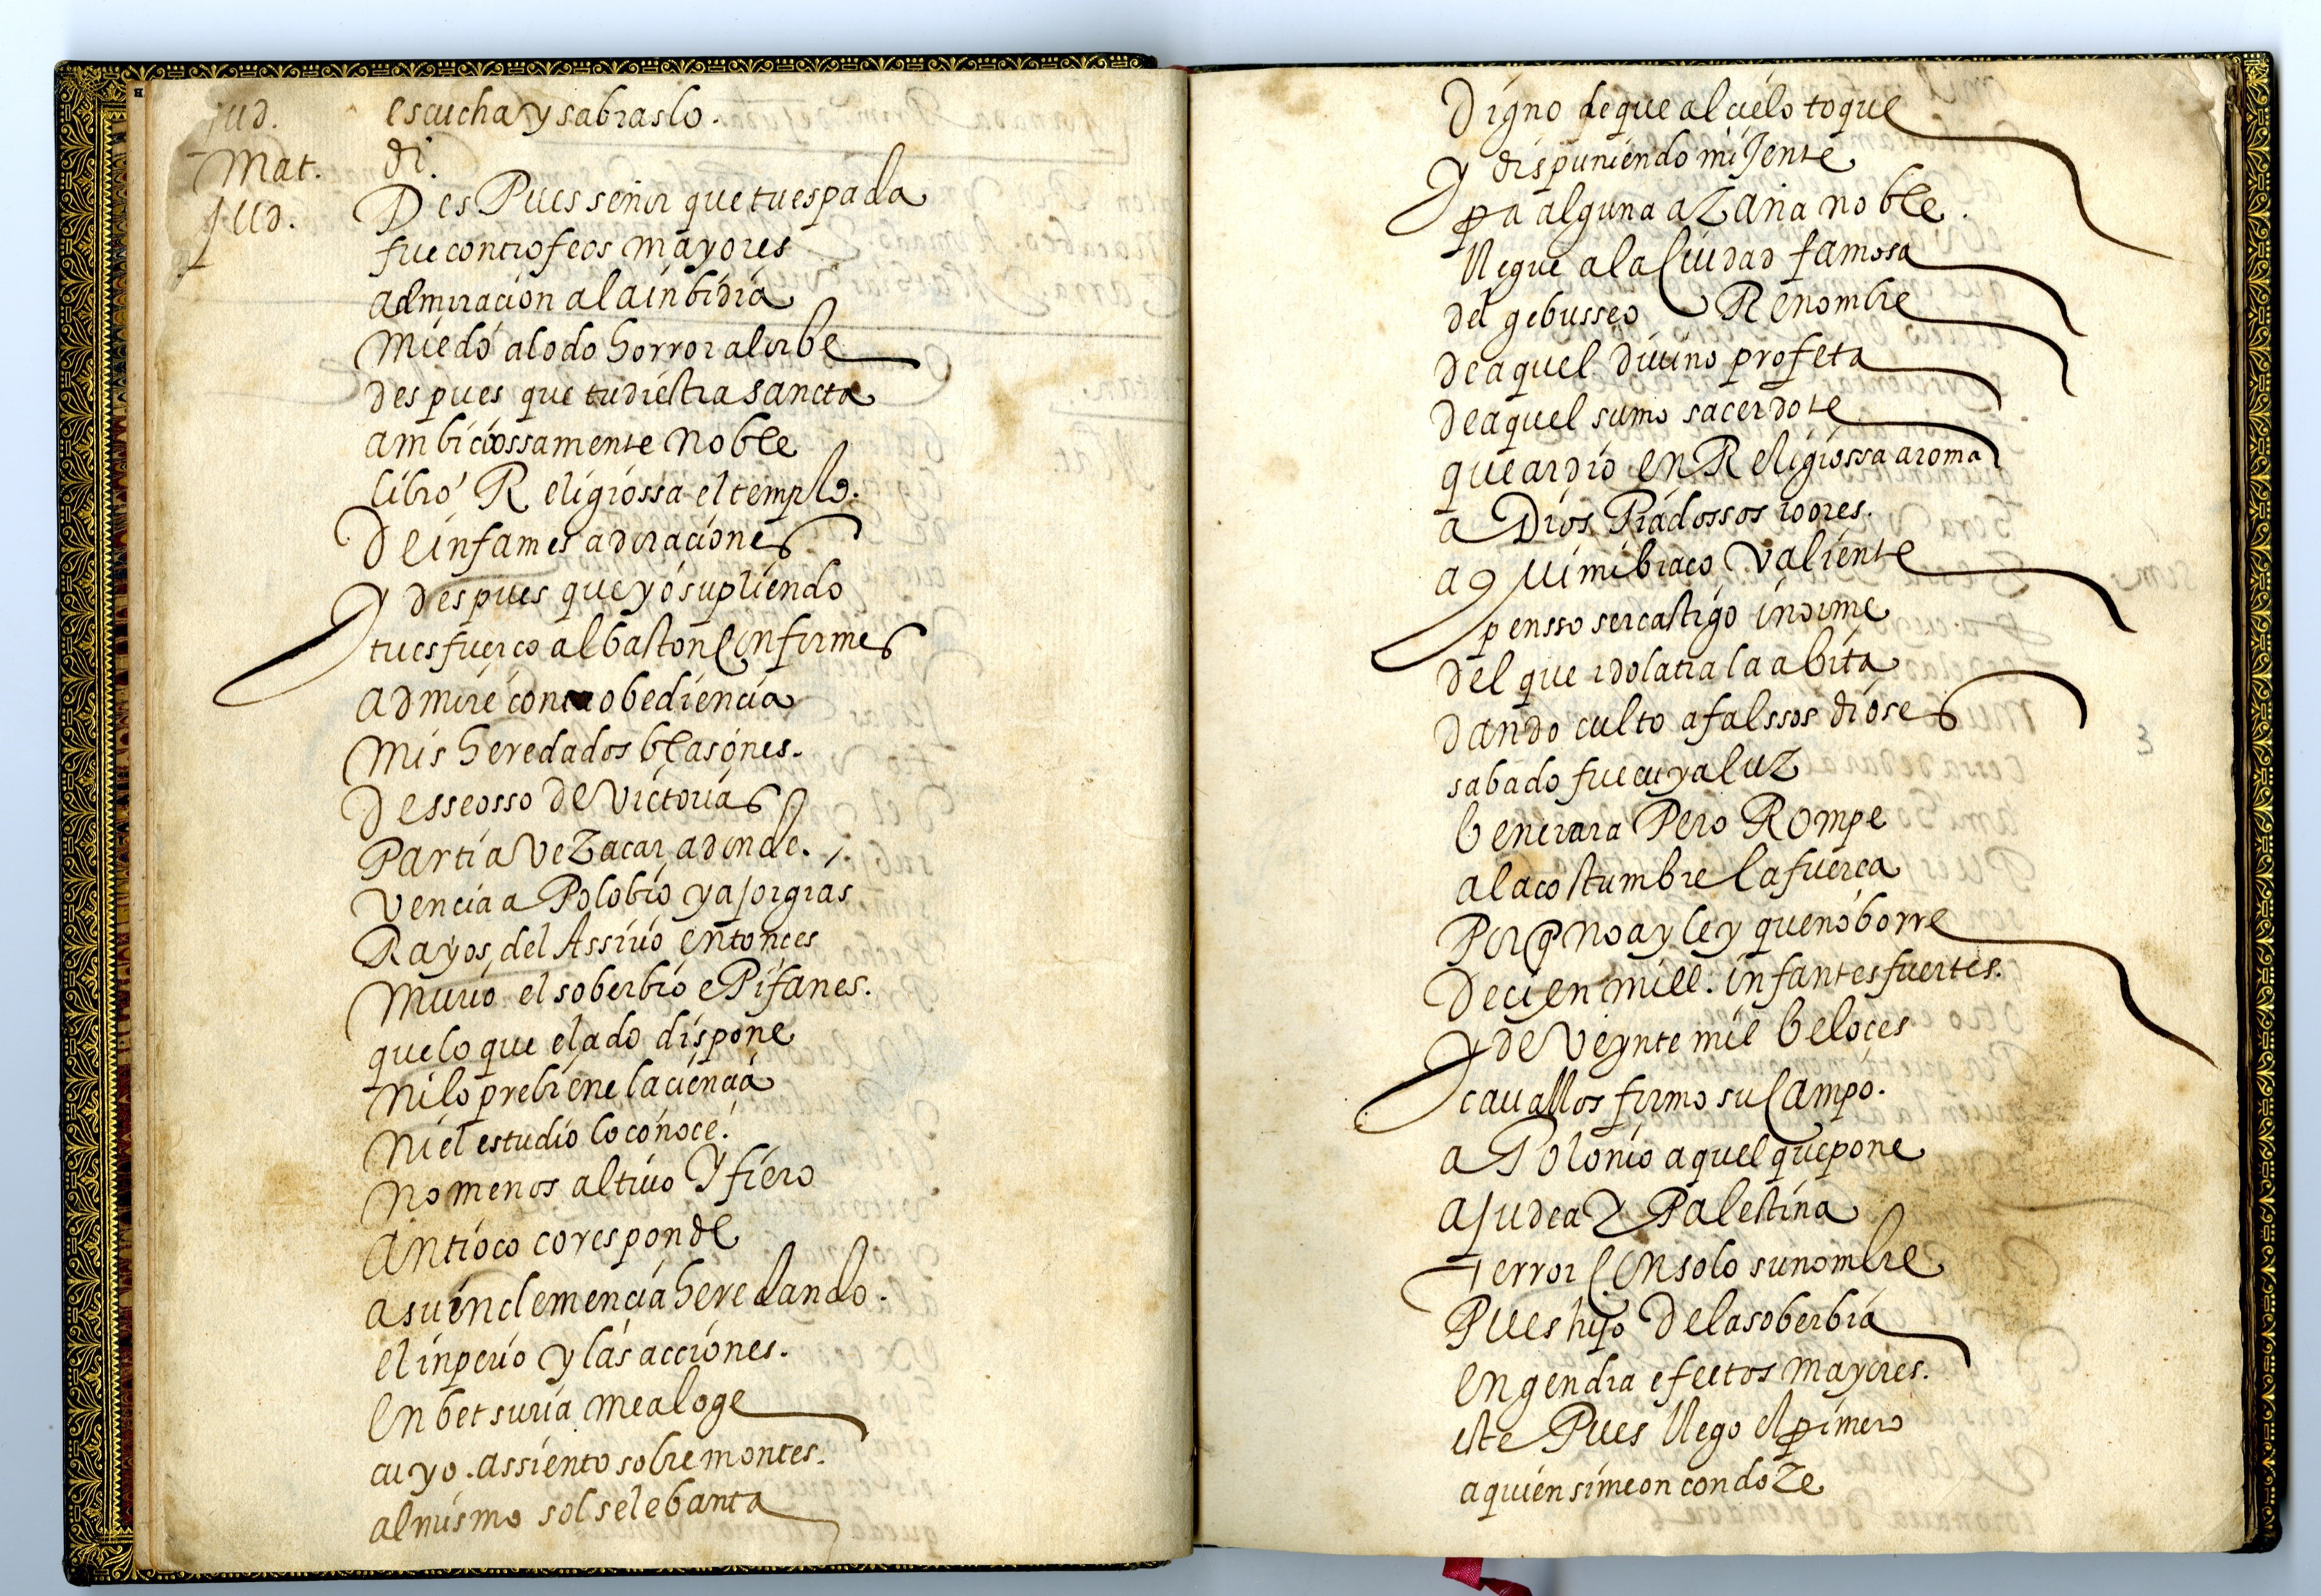 Jud. escucha y sabraslo.
Mat. di.
Jud. Des Pues señor que tu espada
fue con trofeos mayores
admiracion a la inbidia
miedo alodo horror al orbe
despues que tu diestra sancta
ambiciossamente noble
libro Religiossa el templo.
De infames adoraciones
Y despues que yo supliendo
tu esfuerço al baston Conforme
admire con obediencia
mis heredados blasones.
Desseosso de victorias
Parti a Vezacar, adonde.
venci a a Polobio y a Jorgias
Rayos, del Assirio entonces
Murio el soberbio ePifanes.
que lo que el ado dispone
ni lo prebiene la ciencia
ni el estudio lo conoce.
no menos altivo Y fiero
Antioco coresponde
a su inclemencia heredando.
el inperio y las acciones.
En betsuria me aloge
cuyo. assiento sobre montes.
al mismo sol se lebanta
Digno de que al cielo toque
Y dispuniendo mi Jente
pa alguna azaña noble.
llegue a la Ciudad famosa
del gebusseo Renombre
de aquel divino profeta
de aquel sumo sacerdote
que ardio en Religiossa aroma
a Dios Piadossos loores.
a qui mi braço valiente
pensso ser castigo inorme
del que idolatra la abita
dando culto a falssos dioses
sabado fue cuya luz
benerara Pero Rompe
a la costumbre la fuerça
Porq no ay ley que no borre
De cien mill. infantes fuertes.
Y de veynte mil beloçes
cauallos firmo su Campo.
a Polonio aquel que pone
a Judea Y Palestina
Terror Con solo su nombre
Pues hijo De la soberbia
engendra efectos mayores.
este Pues llego el pimero
a quien simeon con doze